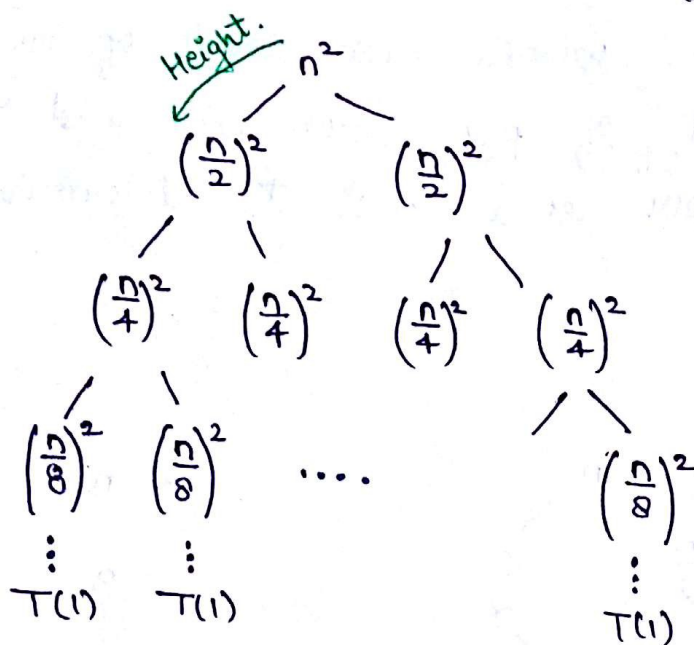 Height.
n²
(n/2)² (n/2)²
(n/4)² (n/4)² (n/4)² (n/4)²
(n/8)² (n/8)² .... (n/8)²
⋮ ⋮ ⋮
T(1) T(1) T(1)